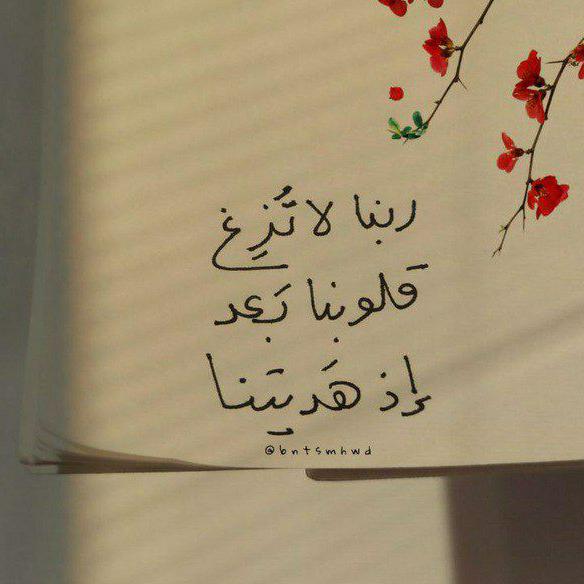 ربنا لا تُزِغ
قلوبنا بَعد
إذ هَديتنا
@bntsmhwd